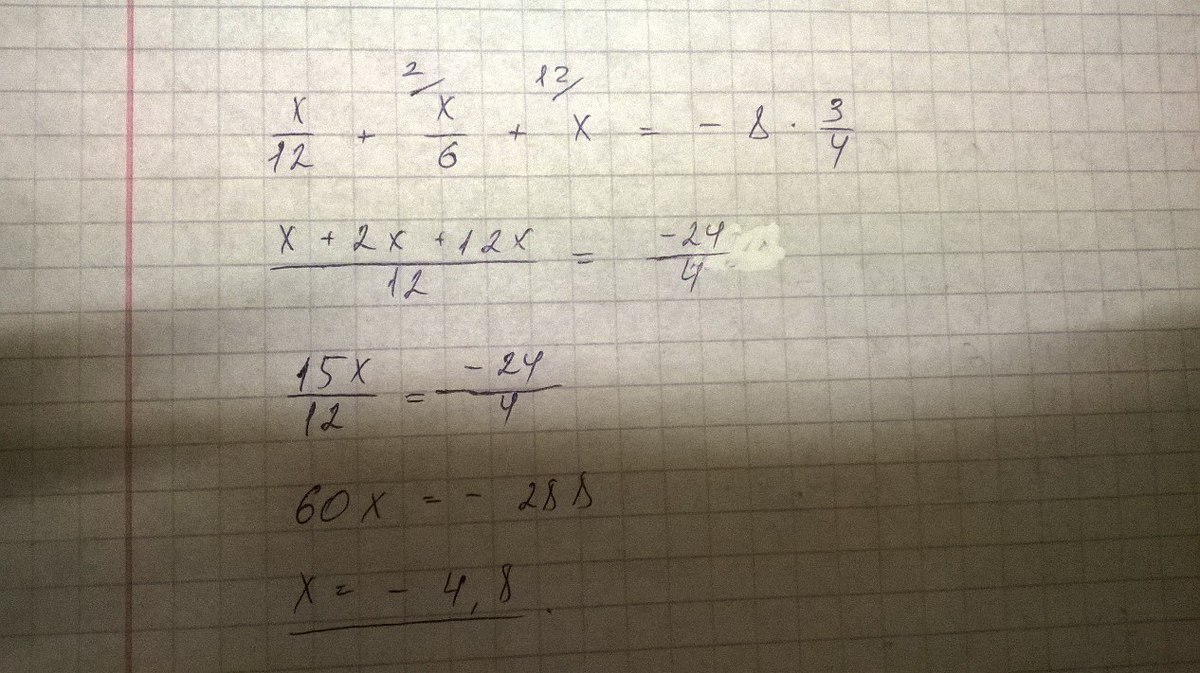 2/ 12/
x/12 + x/6 + x = - 8 · 3/4
(x + 2x + 12x)/12 = -24/4
15x/12 = -24/4
60x = - 288
x = - 4,8.